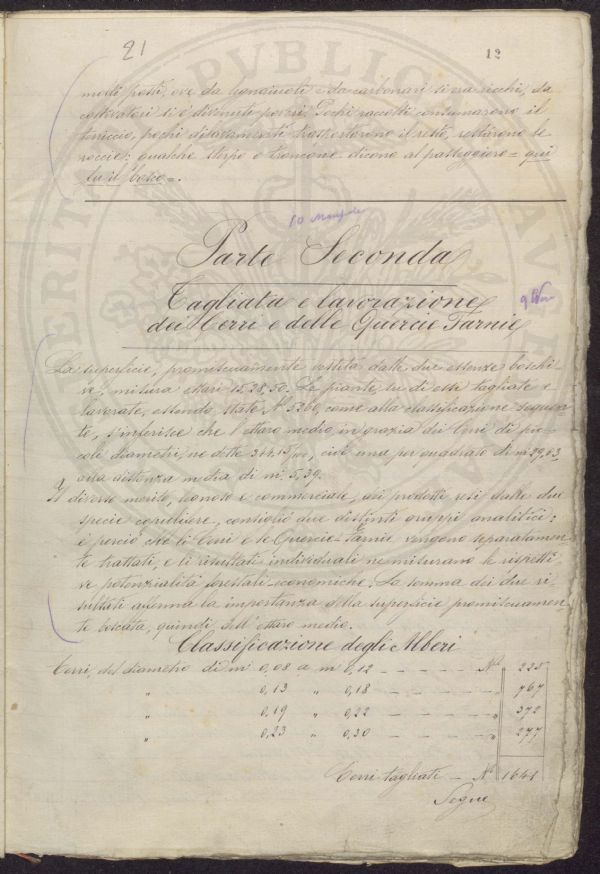 21
12
molti posti, ove da legnaiuoli e da carbonari si va ricchi, da
coltivatori si è divenuti poveri. Pochi raccolti consumarono il
terriccio, pochi dilavamenti trasportarono il resto, restarono le
roccie; qualche sterpo o troncone dicono al passeggiero = qui
fu il bosco =.
Parte Seconda
Tagliata e lavorazione
dei Cerri e delle Quercie Farnie
La superficie, promiscuamente vestita dalle due essenze boschi
ve, misura ettari 15.28,50. Le piante, su di essi tagliate e
lavorate, essendo state N° 5260, come alla classificazione seguen
te, s'inferisce che l'ettaro medio, in grazia dei Cerri di pic
coli diametri, ne dette 344.13/100, cioè una per quadrato di m. 29,03
alla distanza media di m. 5,39.
Il diverso merito, legnoso e commerciale, dei prodotti resi dalle due
specie consigliò due distinti gruppi analitici:
è perciò che li Cerri e le Quercie-Farnie vengono separatamen
te trattati, e li risultati individuali ne misurano le rispetti
ve potenzialità forestali-economiche. La somma dei due ri
sultati afferma la importanza della superficie promiscuamen
te boscata, quindi dell'ettaro medio.
Classificazione degli Alberi
Cerri, del diametro di m. 0,08 a m. 0,12 - - - - N° 225
" 0,13 " 0,18 - - - - " 767
" 0,19 " 0,22 - - - - " 372
" 0,23 " 0,30 - - - - " 277
Cerri tagliati - N° 1641
Segue